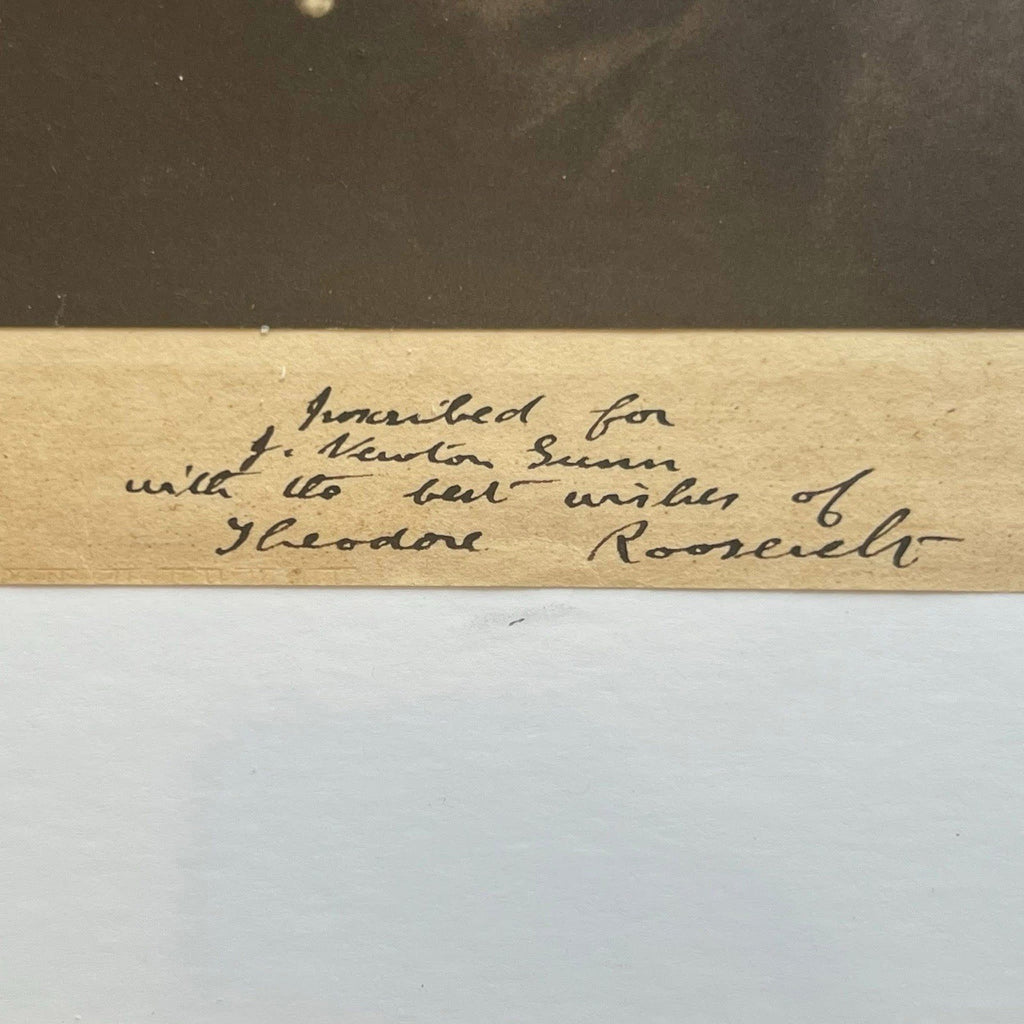 Inscribed for
J. Newton Gunn
with the best wishes of
Theodore Roosevelt